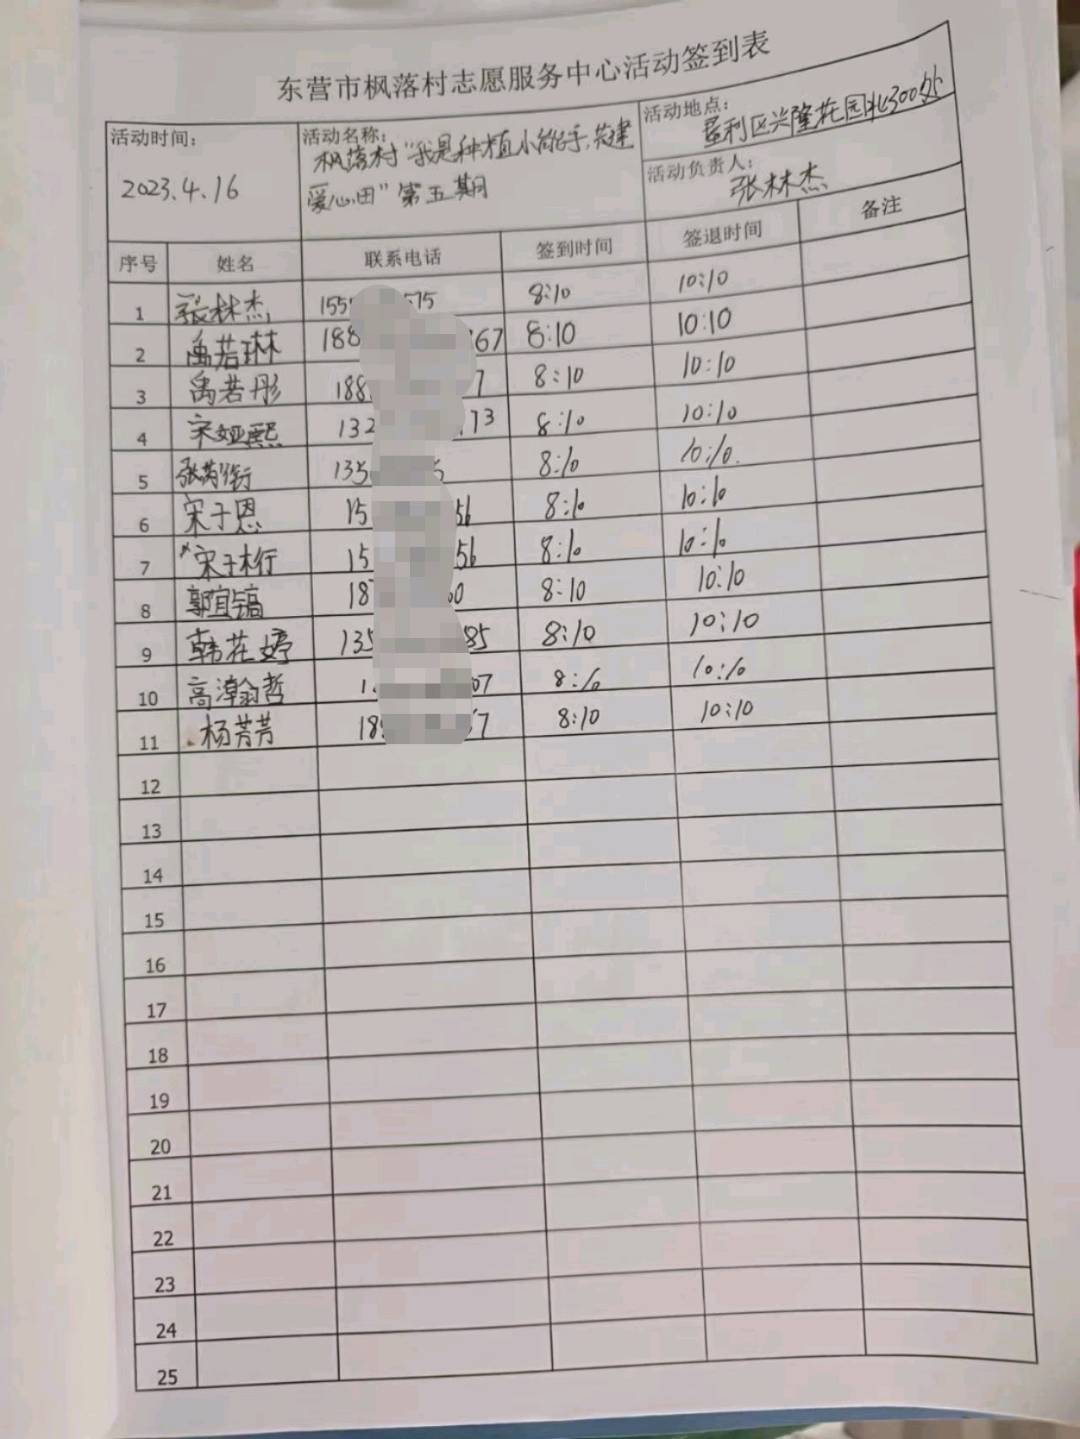 东营市枫落村志愿服务中心活动签到表
活动时间:
2023.4.16
活动名称:
枫落村"我是种植小能手,共建
爱心田"第五期
活动地点:
垦利区兴隆花园北300处
活动负责人:
张林杰
序号 姓名 联系电话 签到时间 签退时间 备注
1 张林杰 155 575 8:10 10:10
2 禹若琳 188 67 8:10 10:10
3 禹若彤 188 7 8:10 10:10
4 宋娅熙 132 73 8:10 10:10
5 张 衍 135 5 8:10 10:10.
6 宋于恩 15 56 8:10 10:10
7 宋于桁 15 56 8:10 10:10
8 郭宜镐 18 60 8:10 10:10
9 韩花婷 135 85 8:10 10:10
10 高瀚哲 1 07 8:10 10:10
11 杨芳芳 18 7 8:10 10:10
12
13
14
15
16
17
18
19
20
21
22
23
24
25